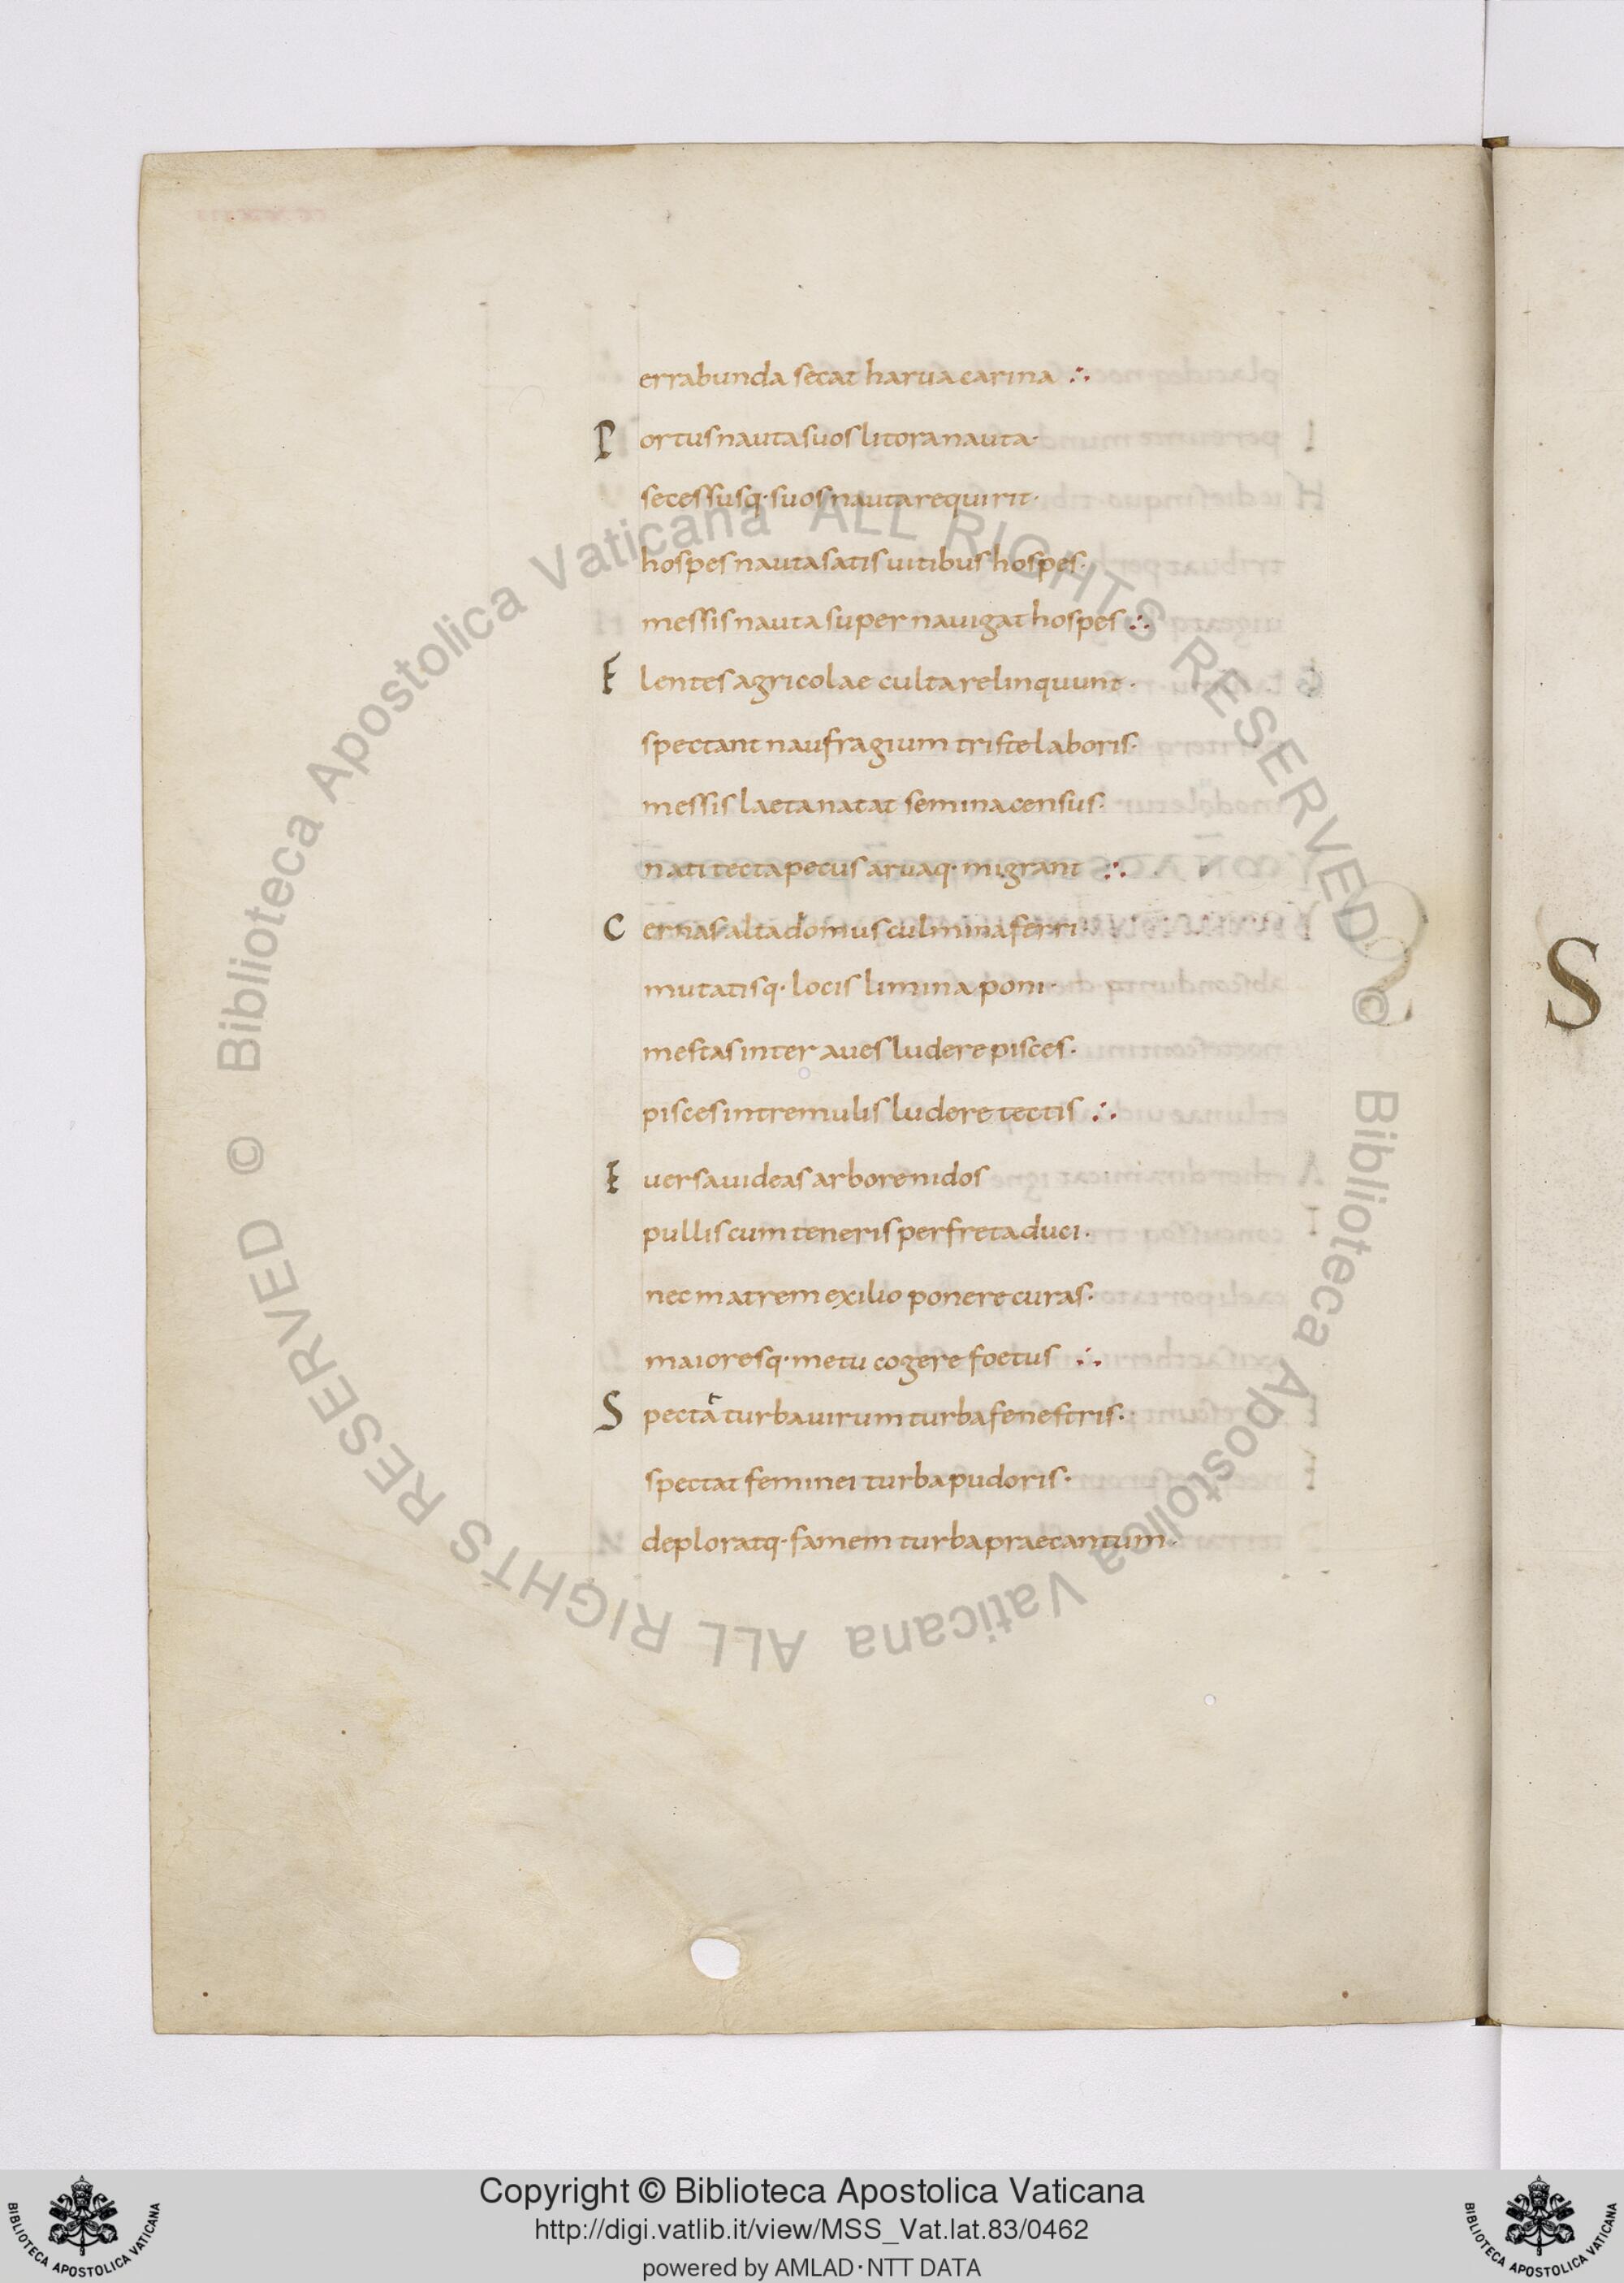 errabunda secat harua carina ∴
P ortus nauta suos litora nauta·
secessusq· suos nauta requirit·
hospes nauta satis uitibus hospes·
messis nauta super nauigat hospes ∴
F lentes agricolae culta relinquunt·
spectant naufragium triste laboris·
messis laeta natat semina census·
nati tecta pecus aruaq· migrant ∴
C ernas alta domus culmina ferri·
mutatisq· locis limina poni·
mestas inter aues ludere pisces·
pisces in tremulis ludere tectis ∴
E uersa uideas arbore nidos
pullis cum teneris per freta duci·
nec matrem exilio ponere curas·
maioresq· metu cogere foetus ∴
S pectat turba uirum turba fenestris·
spectat feminei turba pudoris·
deploratq· famem turba praecantum·
S
© Biblioteca Apostolica Vaticana ALL RIGHTS RESERVED
© Biblioteca Apostolica Vaticana ALL RIGHTS RESERVED
Copyright © Biblioteca Apostolica Vaticana
http://digi.vatlib.it/view/MSS_Vat.lat.83/0462
powered by AMLAD·NTT DATA
BIBLIOTECA APOSTOLICA VATICANA
BIBLIOTECA APOSTOLICA VATICANA